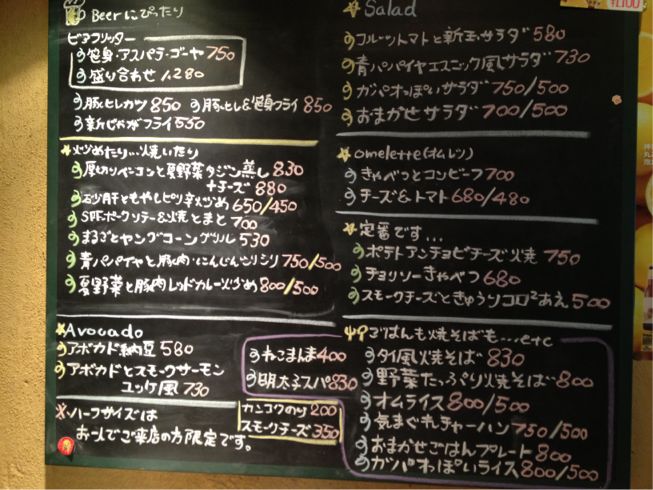 Beerにぴったり
ビアフリッター
笹身・アスパラ・ゴーヤ 750
盛り合わせ 1,280
豚ヒレカツ 850
豚ヒレ&笹身フライ 850
新じゃがフライ 550
炒めたり…焼いたり
厚切りベーコンと夏野菜タジン蒸し 830
+チーズ 880
砂肝ともやしピリ辛炒め 650/450
SPFポークソテー&焼とまと 700
まるごとヤングコーングリル 530
青パパイヤと豚肉・にんじんシリシリ 750/500
夏野菜と豚肉レッドカレー炒め 800/500
Avocado
アボカド納豆 580
アボカドとスモークサーモン
ユッケ風 730
※ハーフサイズは
お一人でご来店の方限定です。
カンコクのり 200
スモークチーズ 350
Salad
フルーツトマトと新玉サラダ 580
青パパイヤエスニック風サラダ 730
ガパオっぽいサラダ 750/500
おまかせサラダ 700/500
omelette(オムレツ)
きゃべつとコンビーフ 700
チーズ&トマト 680/480
定番です…
ポテトアンチョビチーズ焼 750
チョリソーきゃべつ 680
スモークチーズときゅうりコロコロあえ 500
ごはんも焼そばも…etc
ねこまんま 400
明太子スパ 830
タイ風焼そば 830
野菜たっぷり焼そば 800
オムライス 800/500
気まぐれチャーハン 750/500
おまかせごはんプレート 800
ガパオっぽいライス 800/500
¥1,100